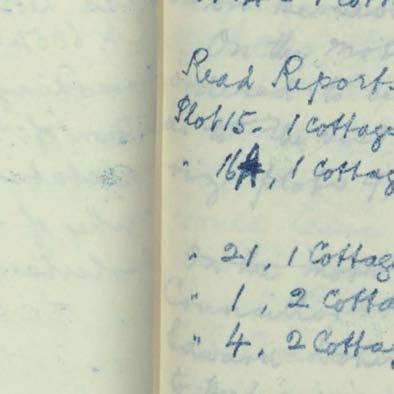 Read Reports
Plot 15 - 1 Cottage
" 16A, 1 Cottage
" 21, 1 Cottag
" 1, 2 Cotta
" 4, 2 Cottag